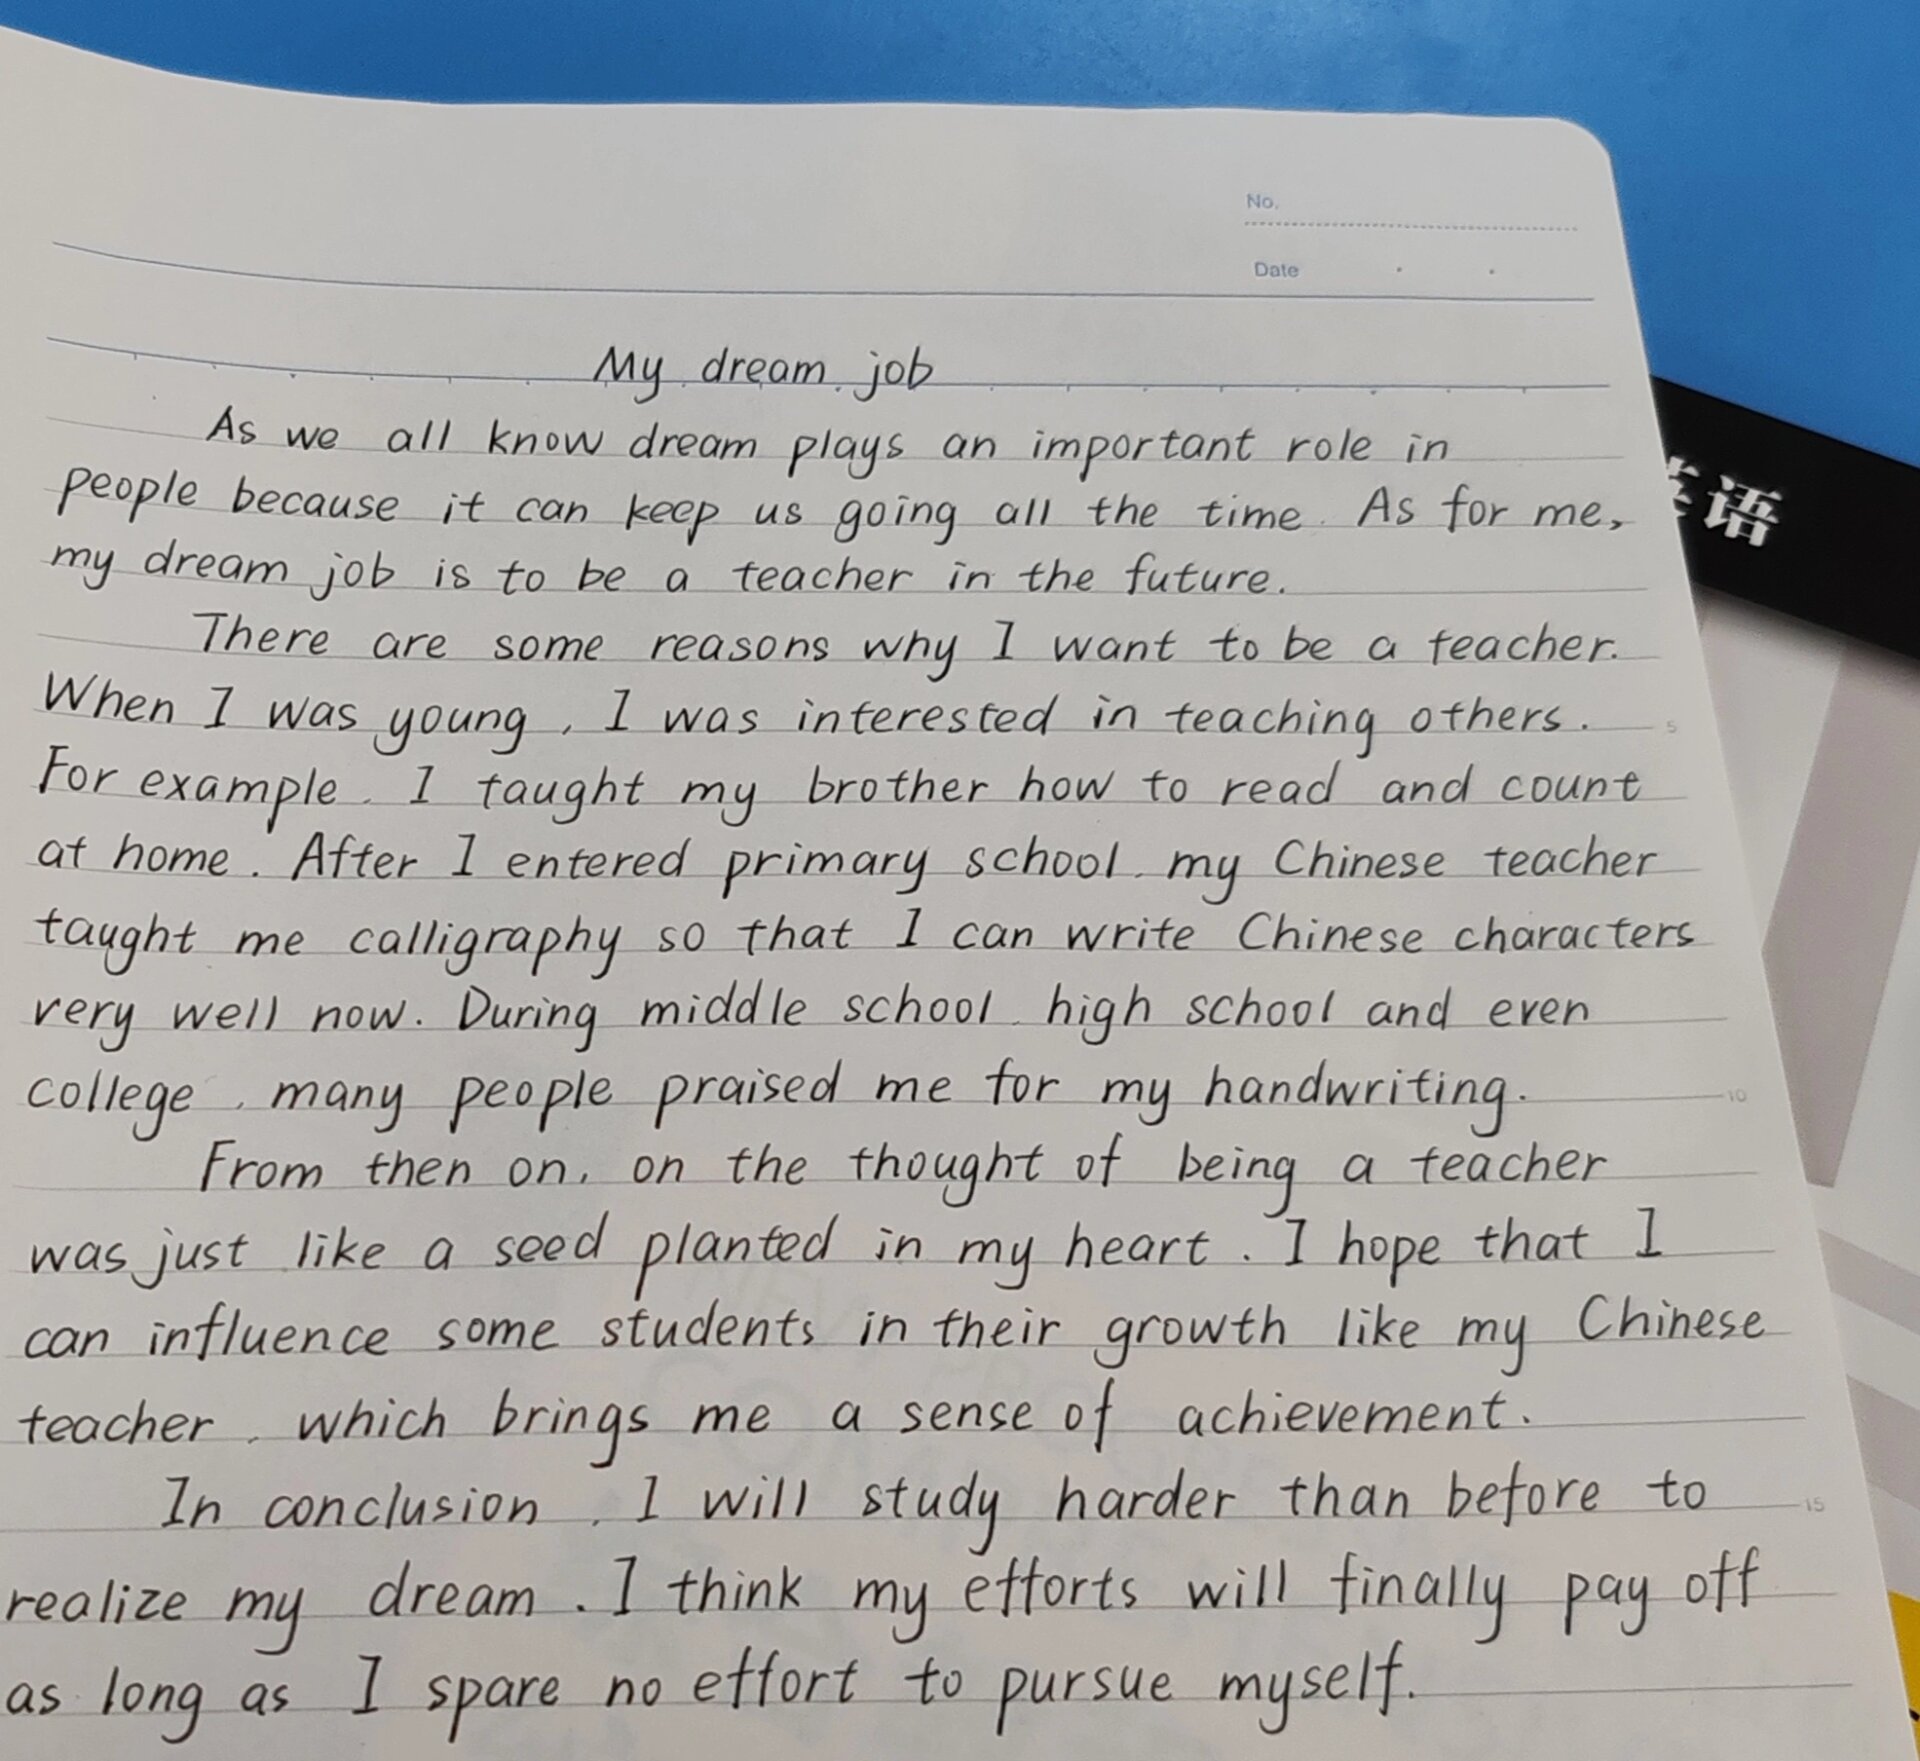 No.
Date
My dream job
As we all know dream plays an important role in
people because it can keep us going all the time. As for me,
my dream job is to be a teacher in the future.
There are some reasons why I want to be a teacher.
When I was young, I was interested in teaching others.
For example, I taught my brother how to read and count
at home. After I entered primary school, my Chinese teacher
taught me calligraphy so that I can write Chinese characters
very well now. During middle school, high school and even
college, many people praised me for my handwriting.
From then on, on the thought of being a teacher
was just like a seed planted in my heart. I hope that I
can influence some students in their growth like my Chinese
teacher, which brings me a sense of achievement.
In conclusion, I will study harder than before to
realize my dream. I think my efforts will finally pay off
as long as I spare no effort to pursue myself.
5
10
15
语